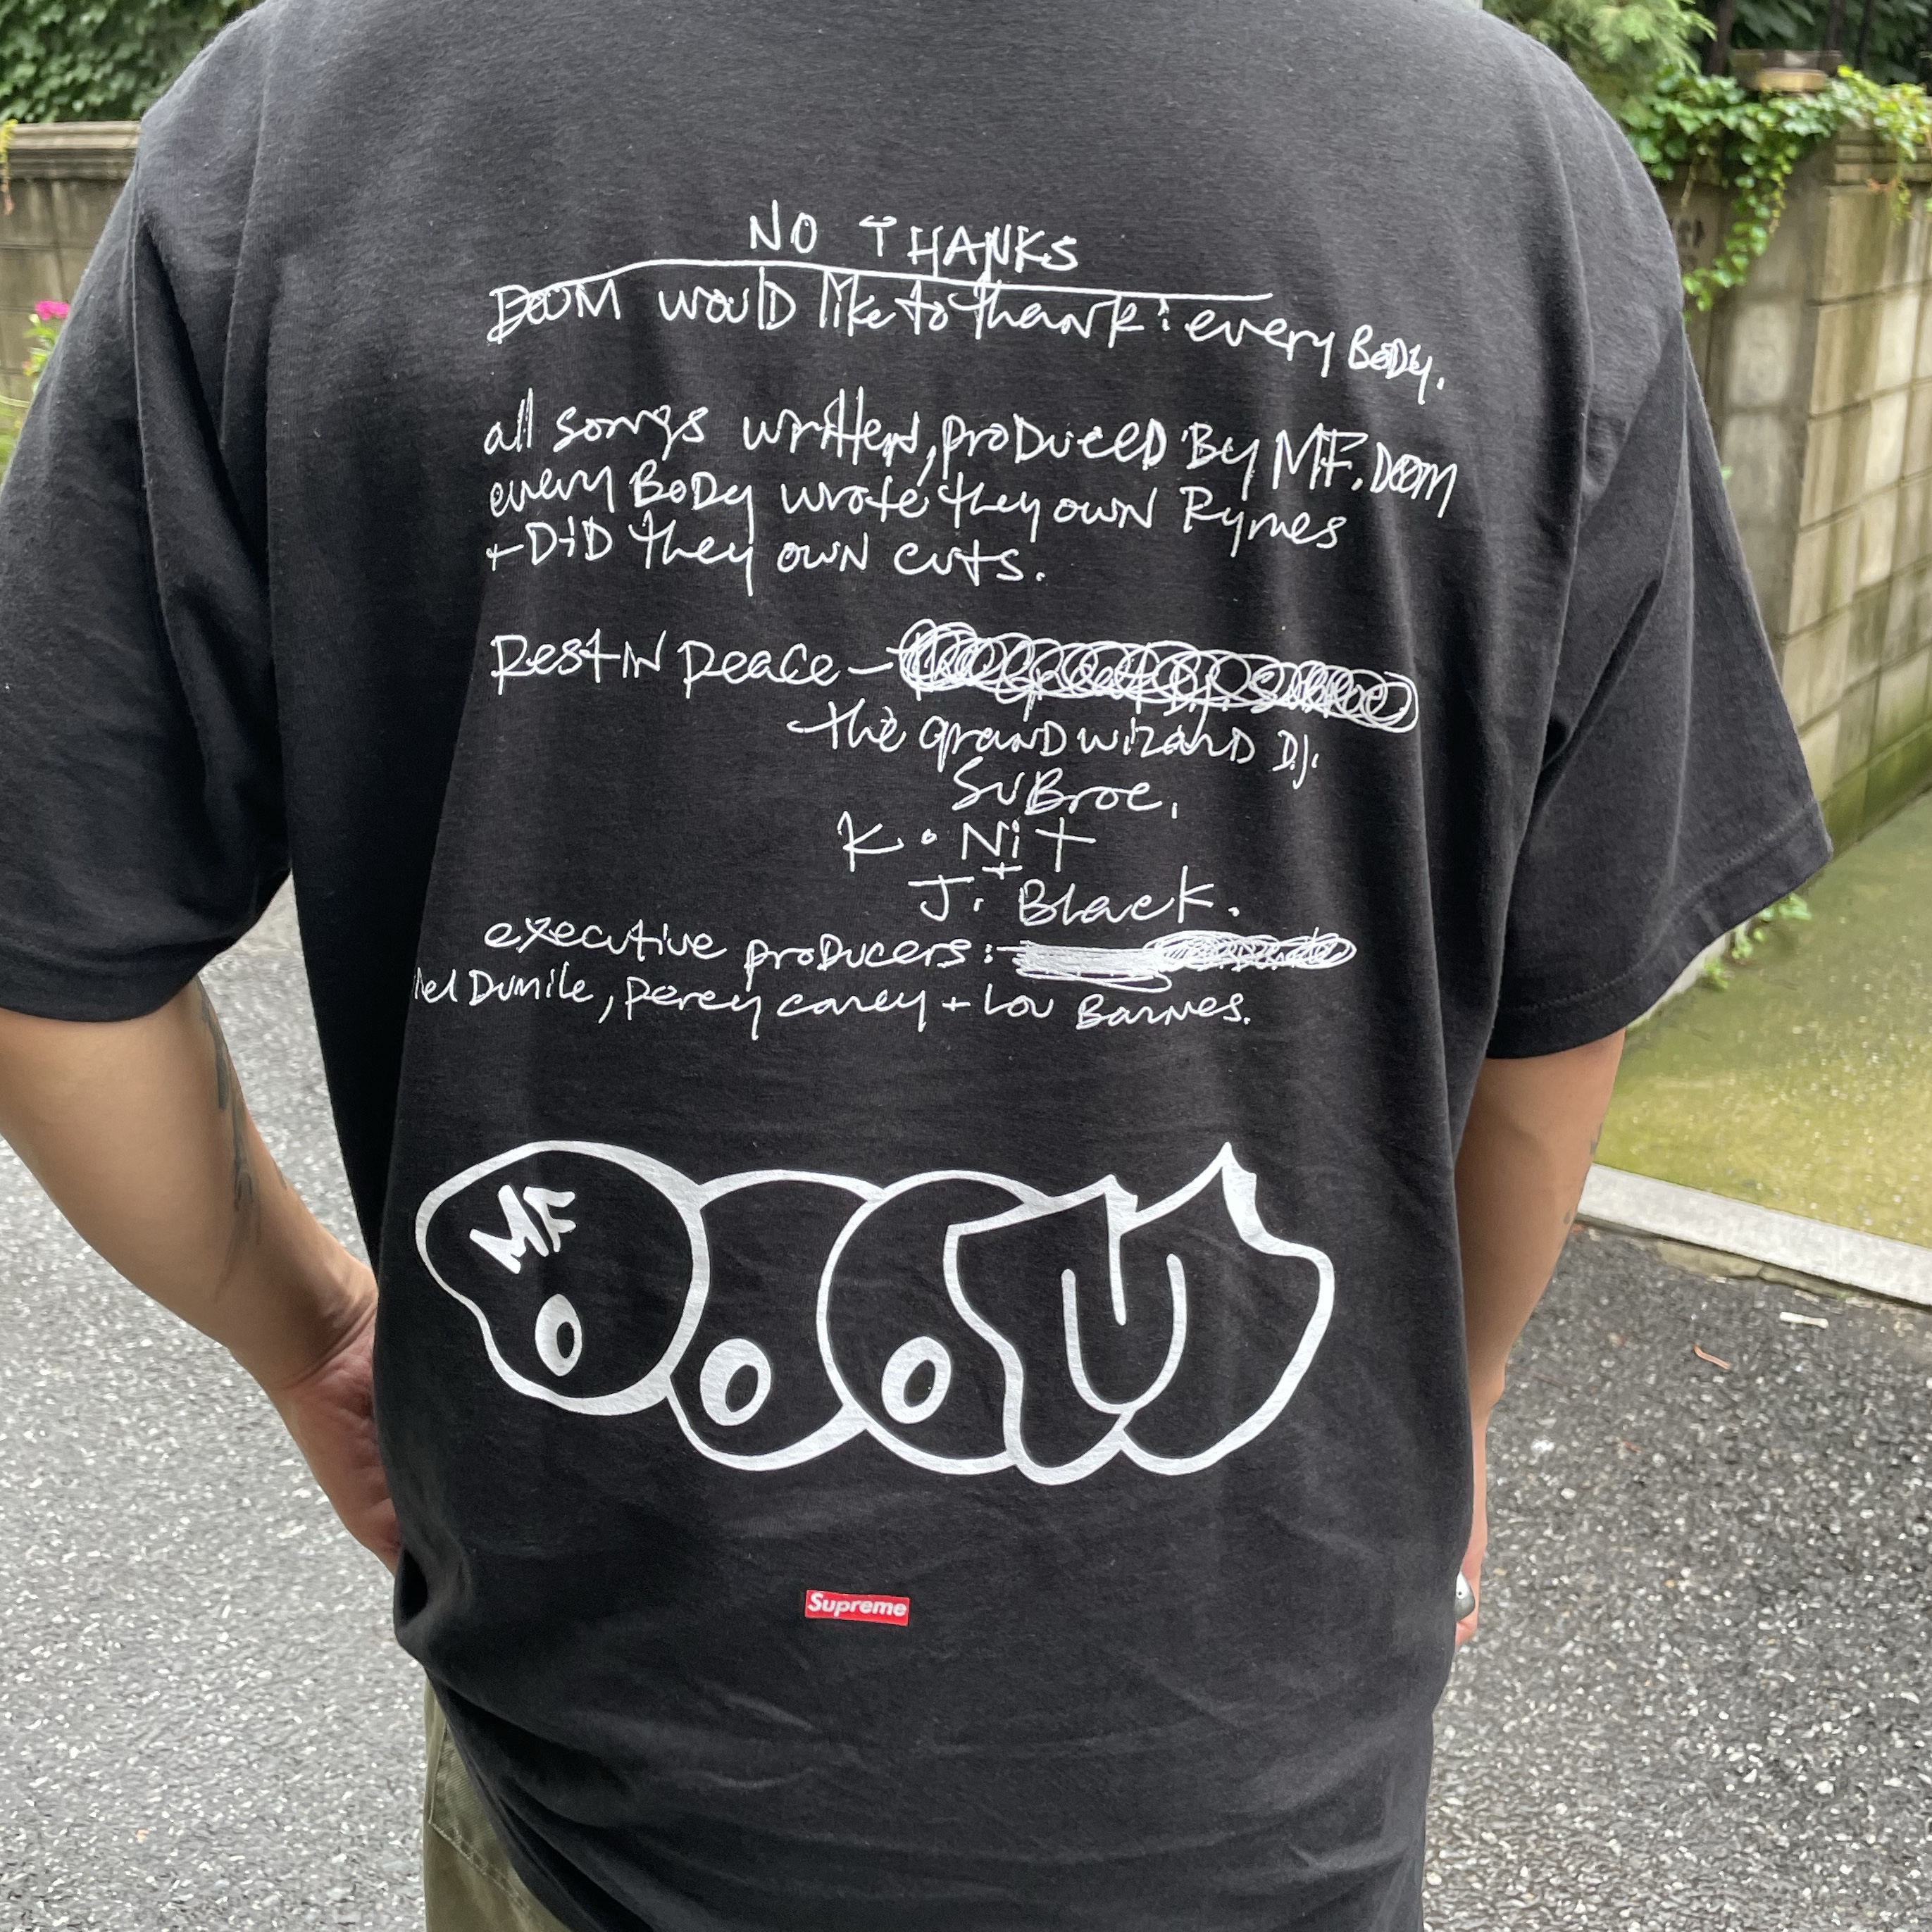 NO THANKS
DOOM would like to thank: every BoDy.
all songs written, proDuceD By MF. DOOM
every BoDy wrote they own Rymes
+ DiD they own cuts.
Rest iN peace –
the graND wizarD D.J.
SuBroc.
K. Nit
+
J. Black.
executive proDucers:
Dumile, percy carey + Lou Barnes.
MF
DOOM
Supreme